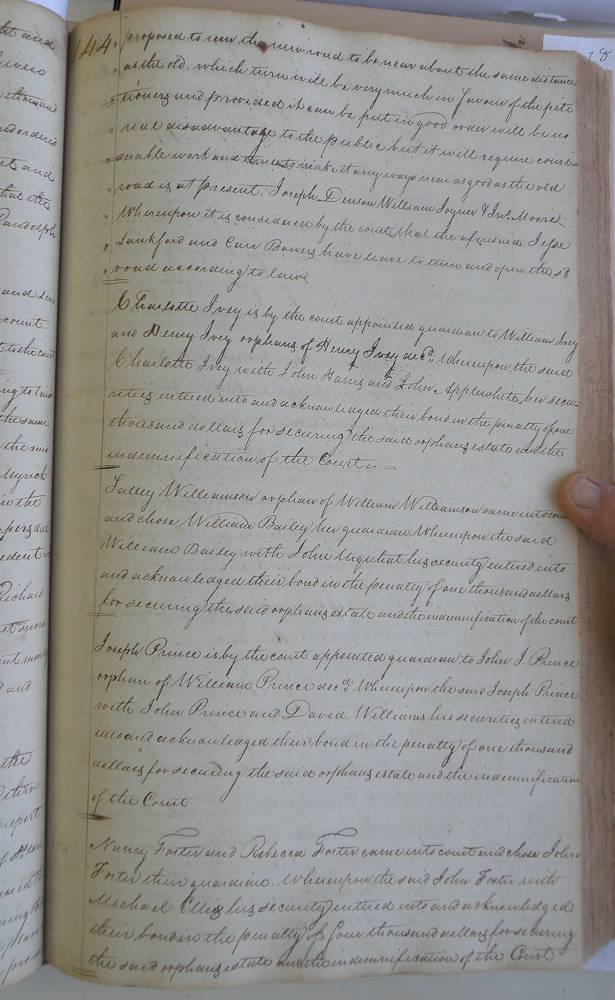 144
" proposed to run the new road to be near about the same distance
" as the old. which turn will be very much in favour of the peti
" tioners and provided it can be put in good order will be no
" real disadvantage to the public but it will require consi
" derable work and time to make it any ways near as good as the old
" road is at present. Joseph Denson William Joyner & Jno. Moore
" Whereupon it is considered by the court that the aforesaid Jesse
" Lankford and Carr Bowers have leave to turn and open the sd
" road according to law
Charlotte Ivey is by the court appointed guardian to William Ivey
and Henry Ivey orphans of Henry Ivey decd. Whereupon the said
Charlotte Ivey with John Harris and John Applewhite her secu-
rities entered into and acknowledged their bond in the penalty of one
thousand dollars for securing the said orphans estate and the
indemnification of the Court
Salley Williamson orphan of William Williamson came into court
and chose William Bailey her guardian Whereupon the said
William Bailey with John Urquhat his security entered into
and acknowledged their bond in the penalty of one thousand dollars
for securing the said orphans estate and the indemnification of the court
Joseph Prince is by the court appointed guardian to John J. Prince
orphan of William Prince decd. Whereupon the said Joseph Prince
with John Prince and David Williams his securities entered
into and acknowledged their bond in the penalty of one thousand
dollars for securing the said orphans estate and the indemnification
of the Court
Nancy Foster and Rebecca Foster came into court and chose John
Foster their guardian. Whereupon the said John Foster with
Michael Ellis his security entered into and acknowledged
their bond in the penalty of four thousand dollars for securing
the said orphans estate and the indemnification of the Court